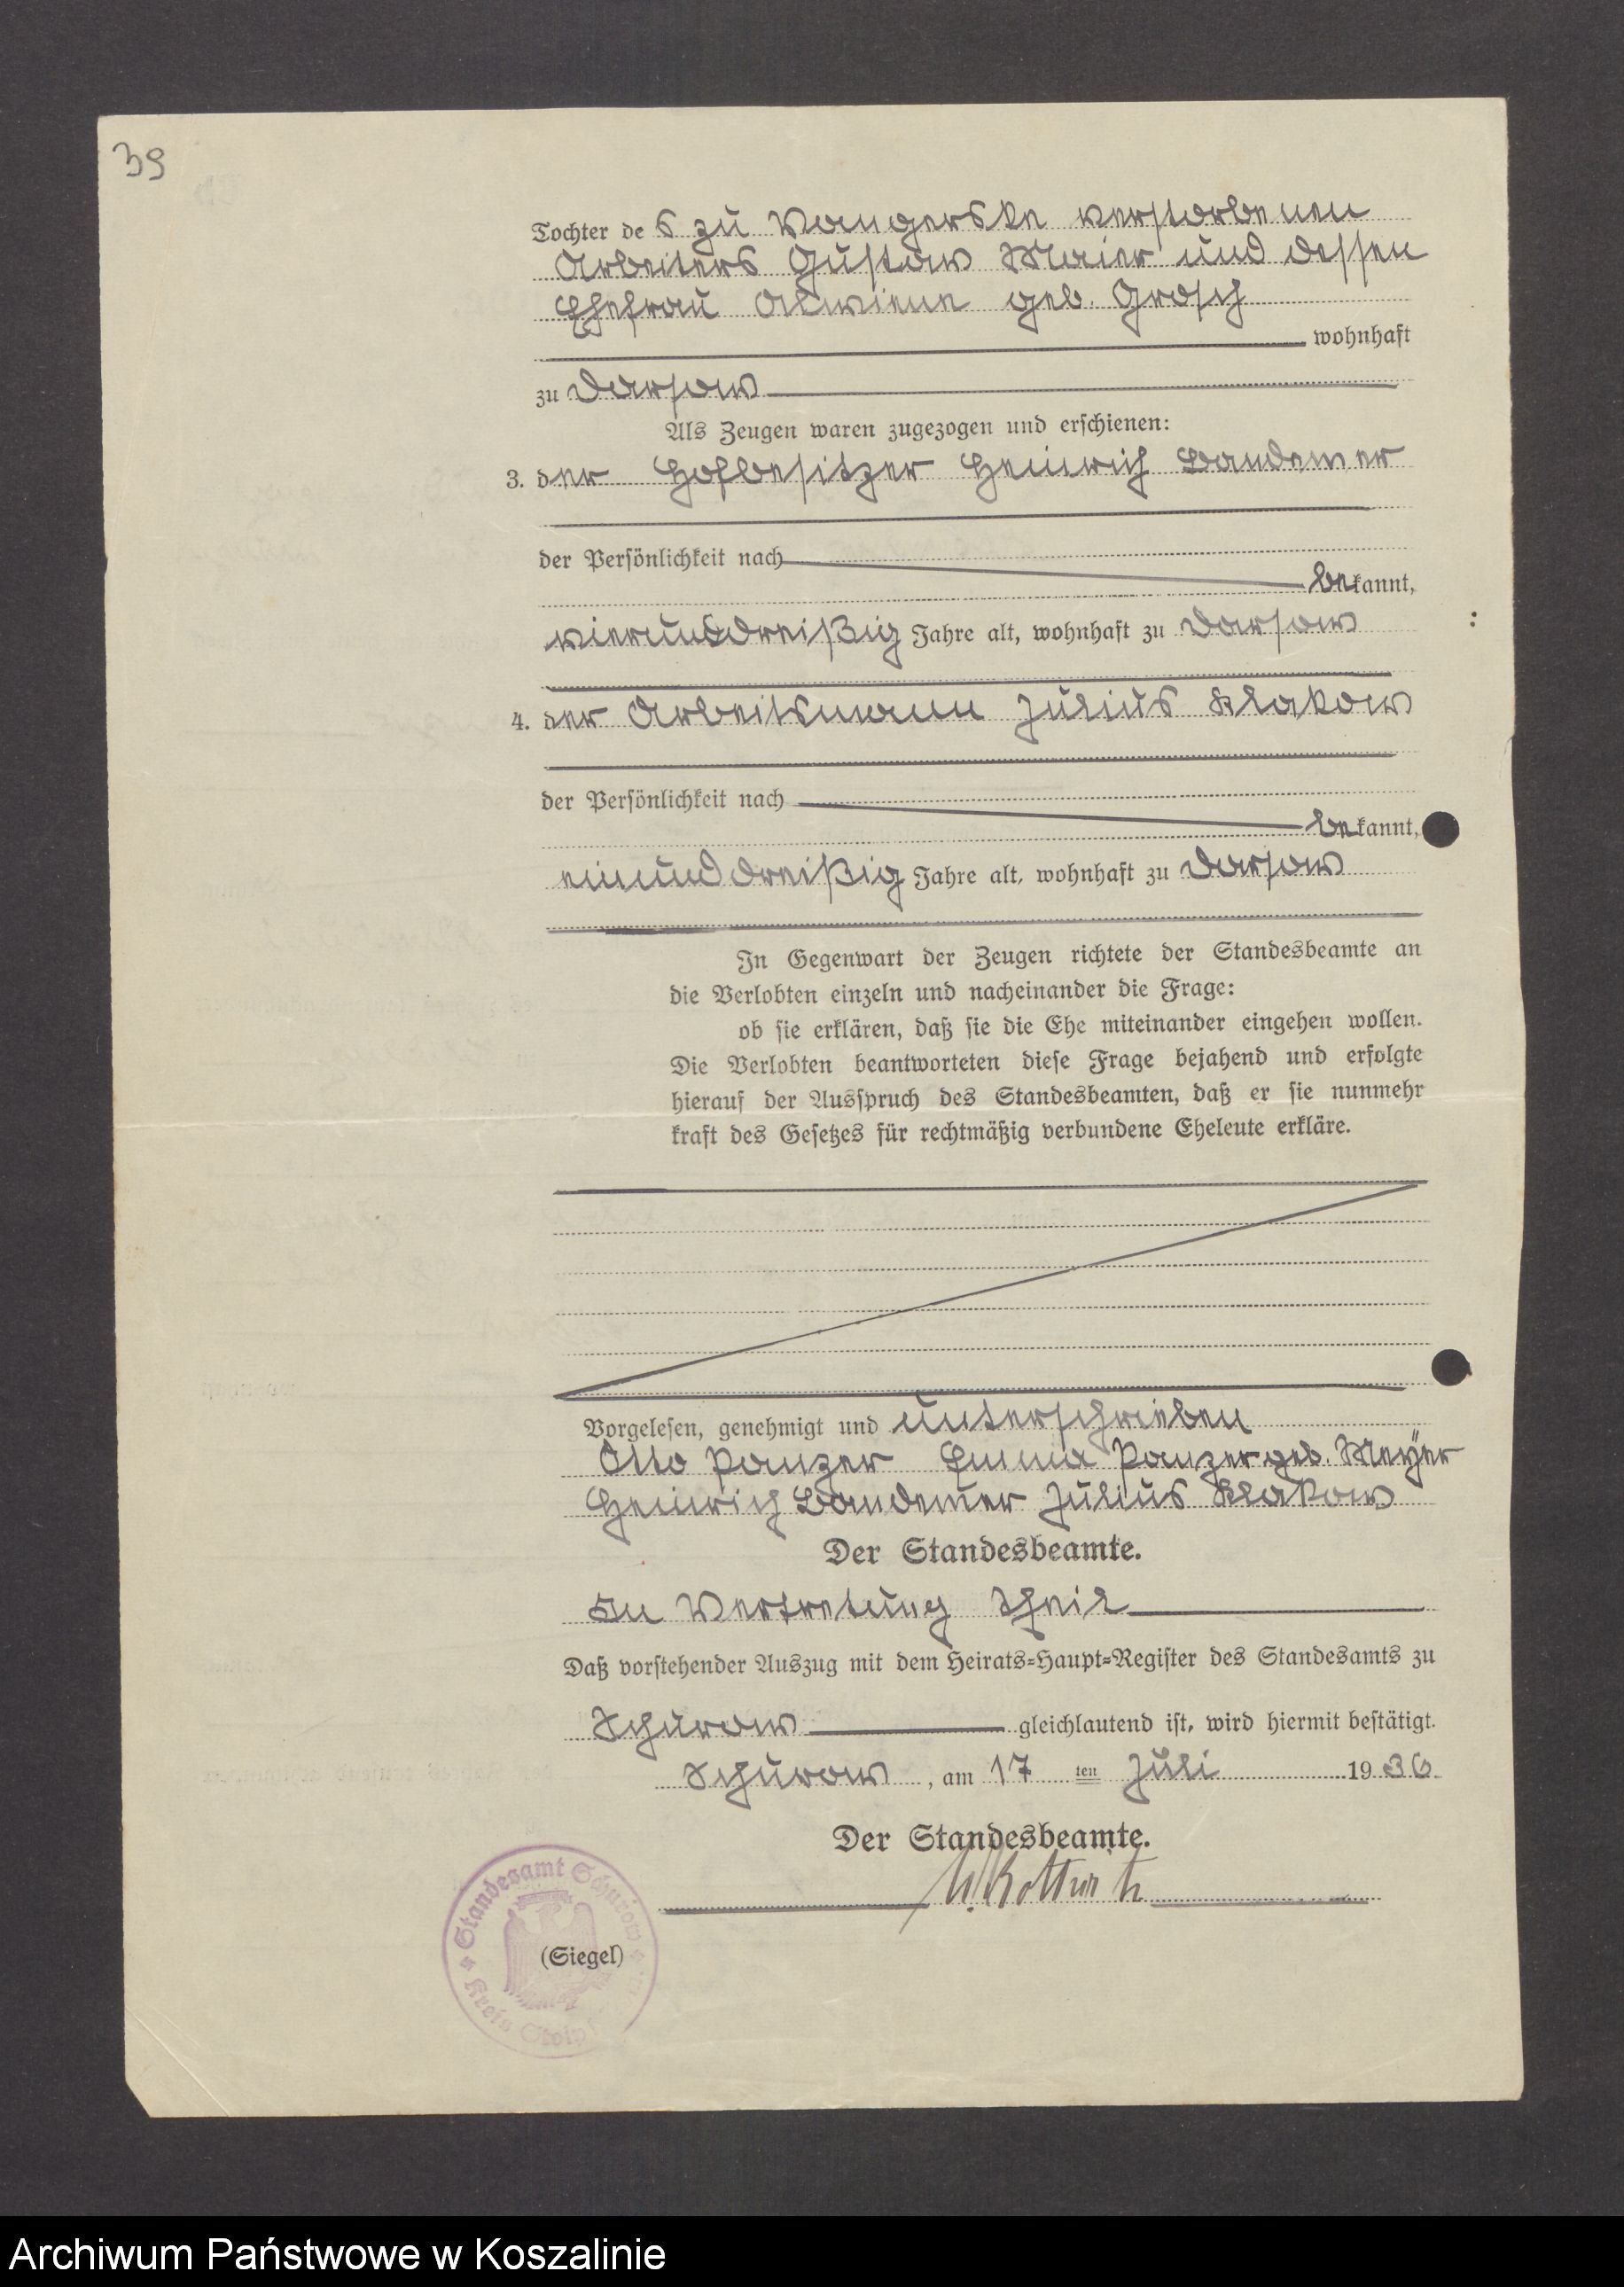 39
Tochter des zu Wangerske verstorbenen
Arbeiters Gustav Maier und dessen
Ehefrau Alwiene geb. Grosch
wohnhaft
zu Darsow
Als Zeugen waren zugezogen und erschienen:
3. der Hofbesitzer Heinrich Bandemer
der Persönlichkeit nach
bekannt,
vierunddreißig Jahre alt, wohnhaft zu Darsow
4. der Arbeitsmann Julius Klakow
der Persönlichkeit nach
bekannt,
einunddreißig Jahre alt, wohnhaft zu Darsow
In Gegenwart der Zeugen richtete der Standesbeamte an
die Verlobten einzeln und nacheinander die Frage:
ob sie erklären, daß sie die Ehe miteinander eingehen wollen.
Die Verlobten beantworteten diese Frage bejahend und erfolgte
hierauf der Ausspruch des Standesbeamten, daß er sie nunmehr
kraft des Gesetzes für rechtmäßig verbundene Eheleute erkläre.
Vorgelesen, genehmigt und unterschrieben
Otto Panzer Emma Panzer geb. Meÿer
Heinrich Bandemer Julius Klakow
Der Standesbeamte.
In Vertretung Scheil
Daß vorstehender Auszug mit dem Heirats-Haupt-Register des Standesamts zu
Schurow gleichlautend ist, wird hiermit bestätigt.
Schurow, am 17ten Juli 1936
Der Standesbeamte.
Standesamt Schurow
(Siegel)
Kreis Stolp
Archiwum Państwowe w Koszalinie